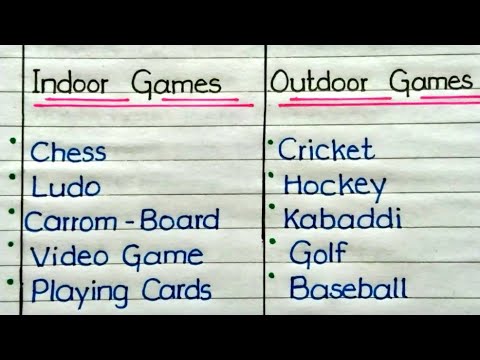 Indoor Games
Chess
Ludo
Carrom-Board
Video Game
Playing Cards
Outdoor Games
Cricket
Hockey
Kabaddi
Golf
Baseball